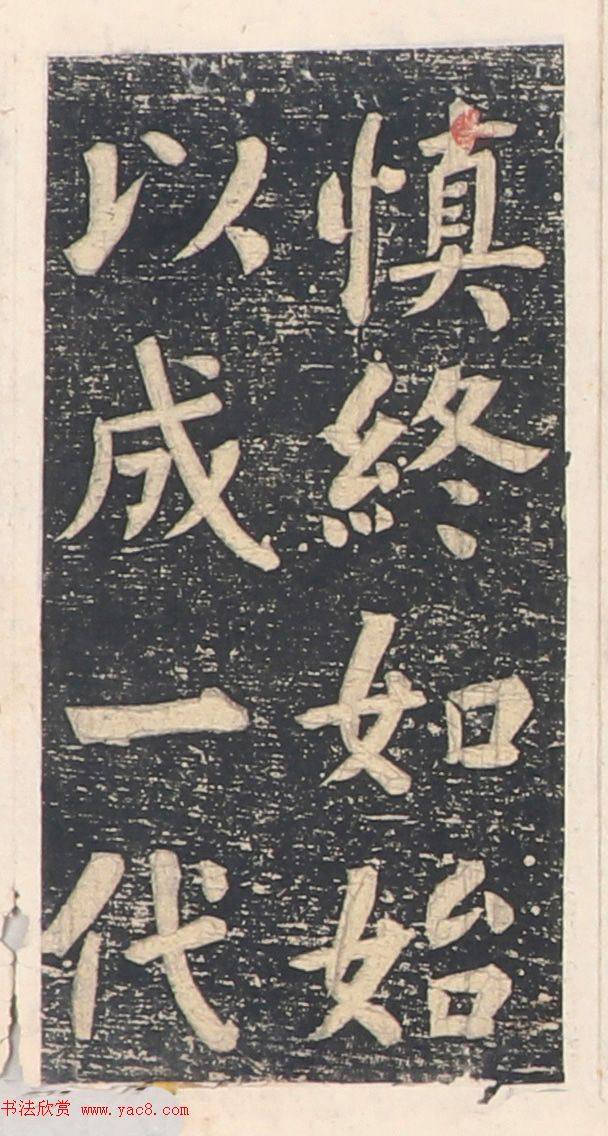 慎終如始
以成一代
书法欣赏 www.yac8.com